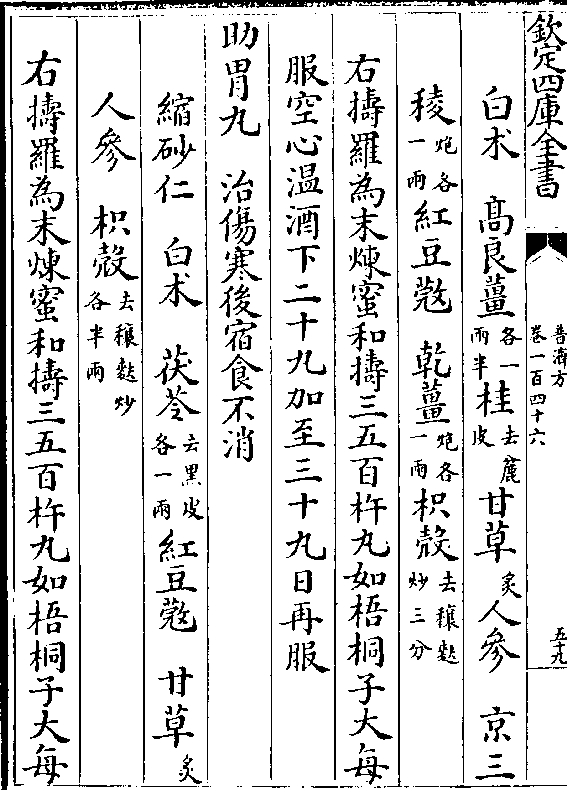 欽定四庫全書
普濟方
卷一百四十六
五十九
白术　髙良薑各一兩半桂去麄皮甘草炙人參　京三
稜炮各一兩紅豆蔲　乾薑炮各一兩枳殼去穰麩炒三分
右擣羅為末煉蜜和擣三五百杵丸如梧桐子大每
服空心温酒下二十丸加至三十丸日再服
助胃丸　治傷寒後宿食不消
縮砂仁　白术　茯苓去黑皮各一兩紅豆蔲　甘草炙
人參　枳殼去穰麩炒各半兩
右擣羅為末煉蜜和擣三五百杵丸如梧桐子大每